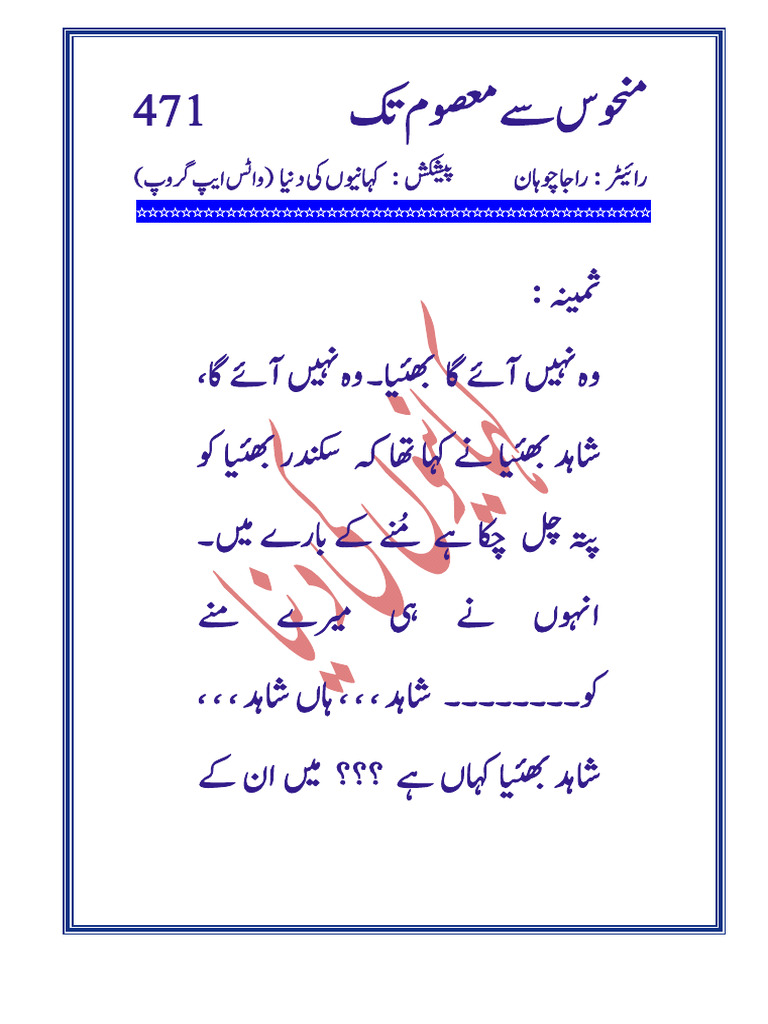 منحوس سے معصوم تک 471
رائیٹر : راجا چوہان پیشکش : کہانیوں کی دنیا (واٹس ایپ گروپ)
☆☆☆☆☆☆☆☆☆☆☆☆☆☆☆☆☆☆☆☆☆☆☆☆☆☆☆☆☆☆☆☆☆☆☆☆☆☆☆☆☆☆☆☆☆☆
ثمینہ :
وہ نہیں آئے گا بھئیا۔ وہ نہیں آئے گا،
شاہد بھئیا نے کہا تھا کہ سکندر بھئیا کو
پتہ چل چکا ہے مُنے کے بارے میں۔
انہوں نے ہی میرے منے
کو۔۔۔۔۔۔۔۔ شاہد ،،، ہاں شاہد ،،،
شاہد بھئیا کہاں ہے ؟؟؟ میں ان کے
کہانیوں کی دنیا